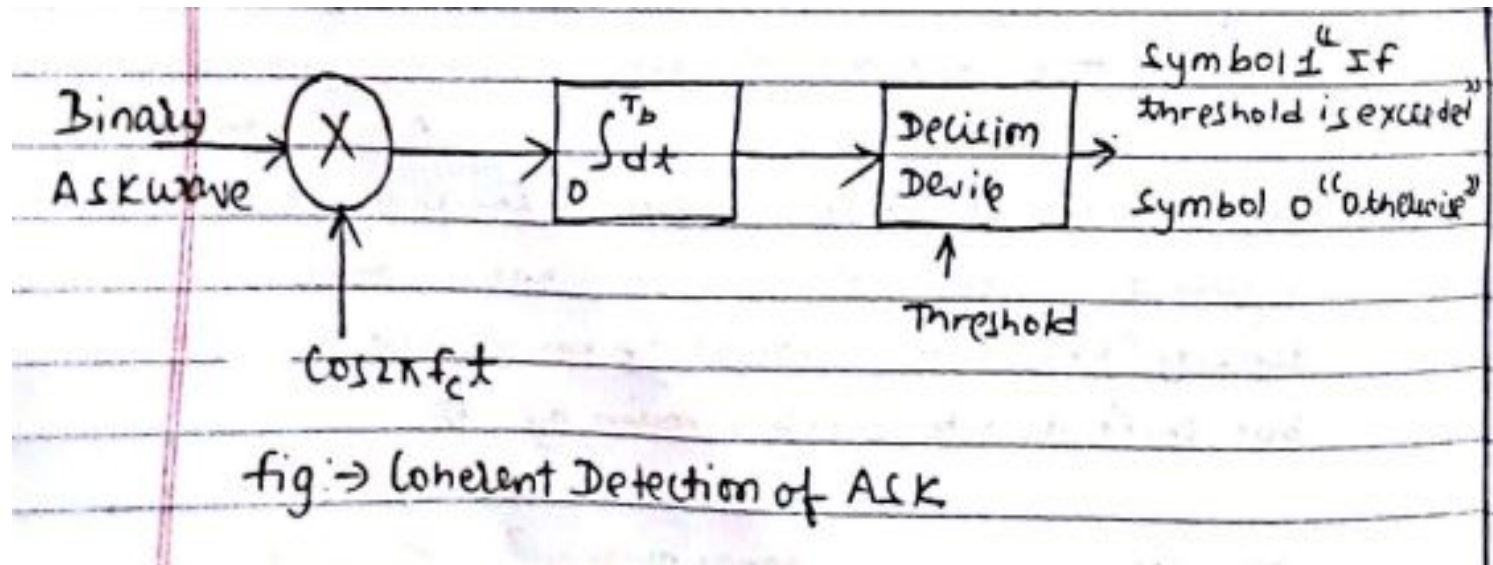 Binary
ASK wave
X
∫₀ᵀᵇ dt
Decision
Device
Threshold
Symbol 1 "If
threshold is exceeded"
Symbol 0 "Otherwise"
Cos2πf_ct
fig:→ Coherent Detection of ASK